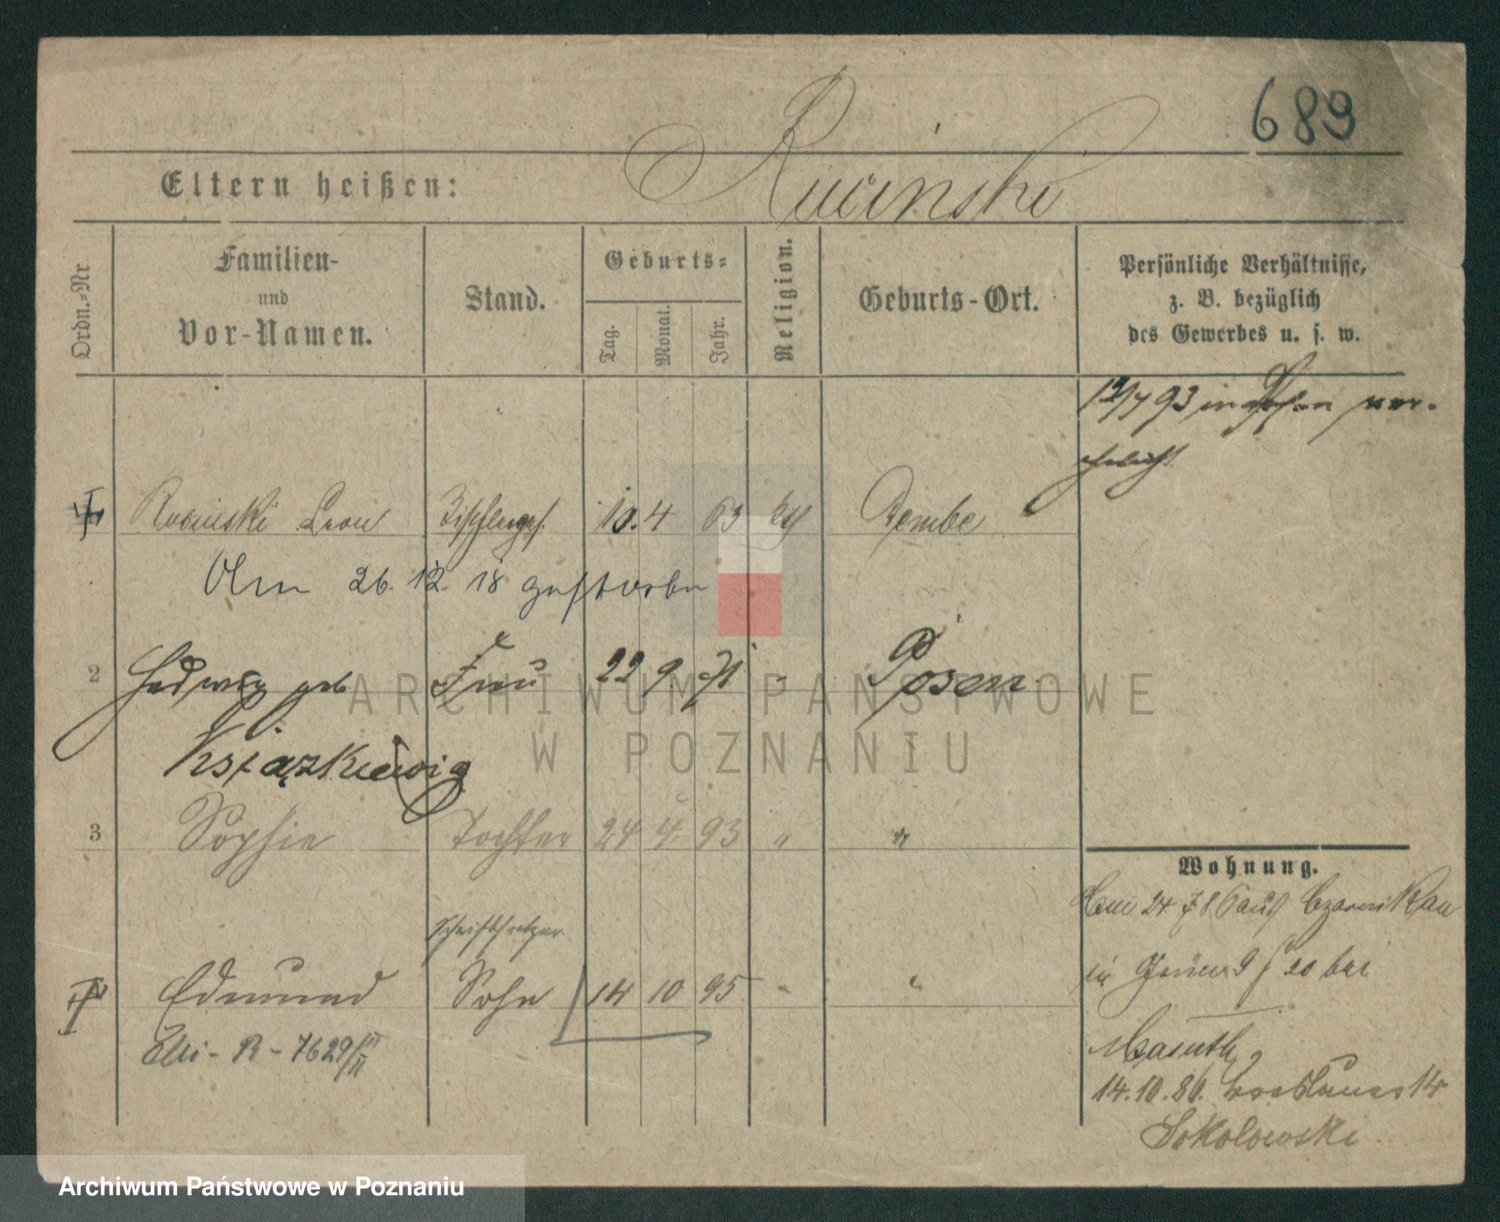 689
Eltern heißen: Rucinski
Ordn.-Nr
Familien- und Vor-Namen.
Stand.
Geburts-
Tag.
Monat.
Jahr.
Religion.
Geburts-Ort.
Persönliche Verhältnisse, z. B. bezüglich des Gewerbes u. s. w.
93 in Posen ver-
ehelicht
Rucinski Leon Tischlerges. 10. 4 63 Dembe
Am 26. 12. 18 gestorben
2 Hedwig geb Frau 22 9 71 " Posen
Książkiewicz
3 Sophie Tochter 24 4. 93 " "
Schriftsetzer
Edmund Sohn 14 10 95 " "
R - 7629/
Wohnung.
24 aus Czarnikau
in 20 bei
14. 10. 86. Breslauer 14
Sokolowski
ARCHIWUM PAŃSTWOWE
W POZNANIU
Archiwum Państwowe w Poznaniu